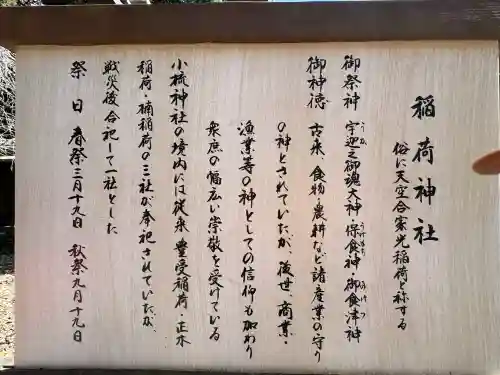 稲荷神社
俗に天空合家光稲荷と称する
御祭神 宇迦之御魂大神・保食神・御食津神
御神徳 古来、食物・農耕など諸産業の守り
の神とされていたが、後世、商業・
漁業等の神としての信仰も加わり
衆庶の幅広い崇敬を受けている
小梳神社の境内には従来 豊受稲荷・正木
稲荷・楠稲荷の三社が奉祀されていたが、
戦災後 合祀して一社とした
祭 日 春祭三月十九日 秋祭九月十九日